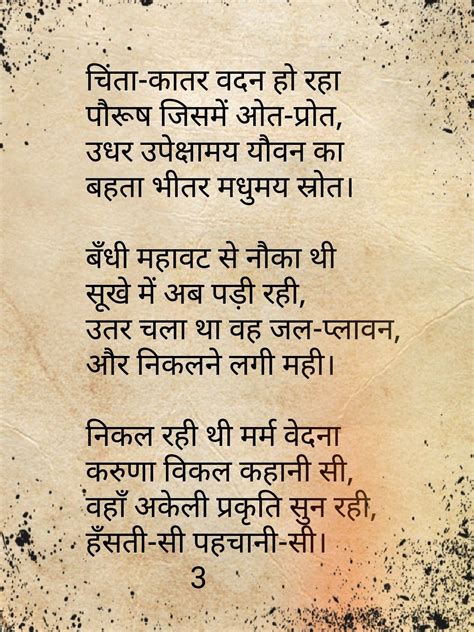 चिंता-कातर वदन हो रहा
पौरूष जिसमें ओत-प्रोत,
उधर उपेक्षामय यौवन का
बहता भीतर मधुमय स्रोत।
बँधी महावट से नौका थी
सूखे में अब पड़ी रही,
उतर चला था वह जल-प्लावन,
और निकलने लगी मही।
निकल रही थी मर्म वेदना
करुणा विकल कहानी सी,
वहाँ अकेली प्रकृति सुन रही,
हँसती-सी पहचानी-सी।
3